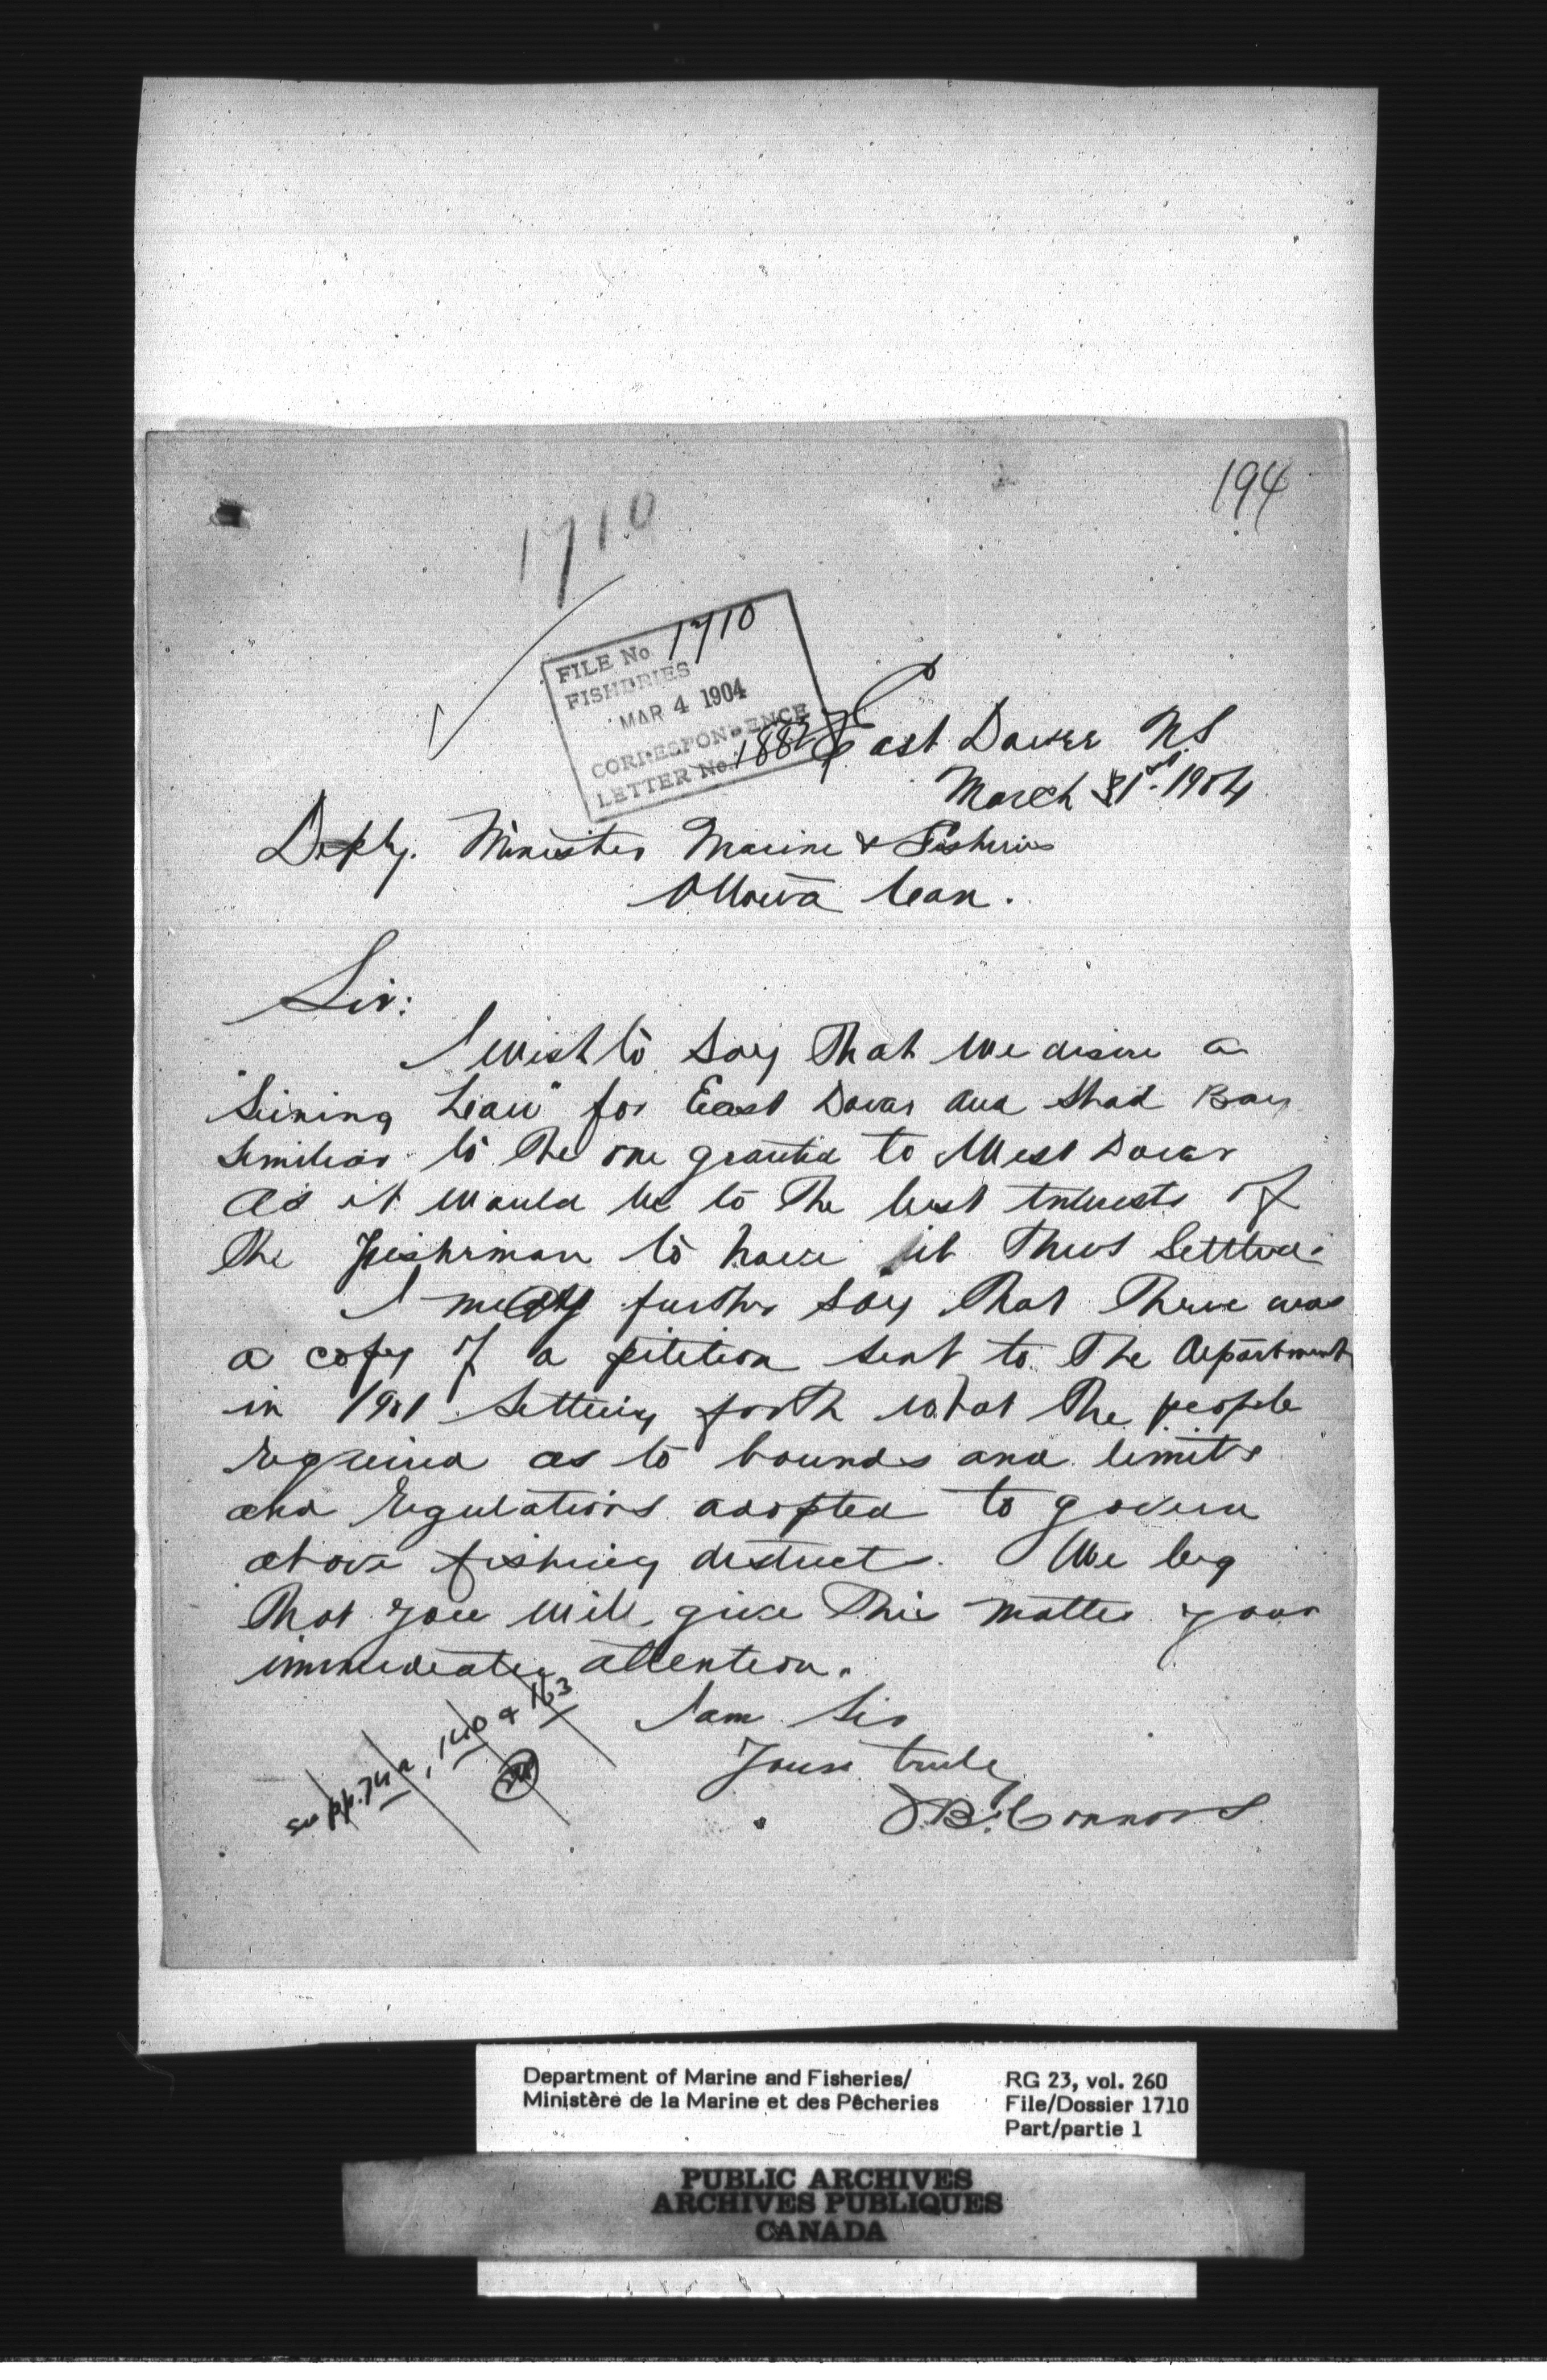 194
1710
FILE No 1710
FISHERIES
MAR 4 1904
CORRESPONDENCE
LETTER No. 1882
East Dover NS
March 1st 1904
Depty. Minister Marine & Fisheries
Ottawa Can.
Sir:
I wish to say that we desire a
"Seining Law" for East Dover and Shad Bay
similiar to the one granted to West Dover
as it would be to the best interests of
the fisherman to have it thus settled.
I may further say that there was
a copy of a petition sent to the Department
in 1901 setting forth what the people
required as to bounds and limits
and regulations adopted to govern
above fishing districts. We beg
that you will give this matter your
immediate attention.
I am Sir
Yours truly
J.B. Connors
see pp. 74a, 140 & 163
Department of Marine and Fisheries/
Ministère de la Marine et des Pêcheries
RG 23, vol. 260
File/Dossier 1710
Part/partie 1
PUBLIC ARCHIVES
ARCHIVES PUBLIQUES
CANADA